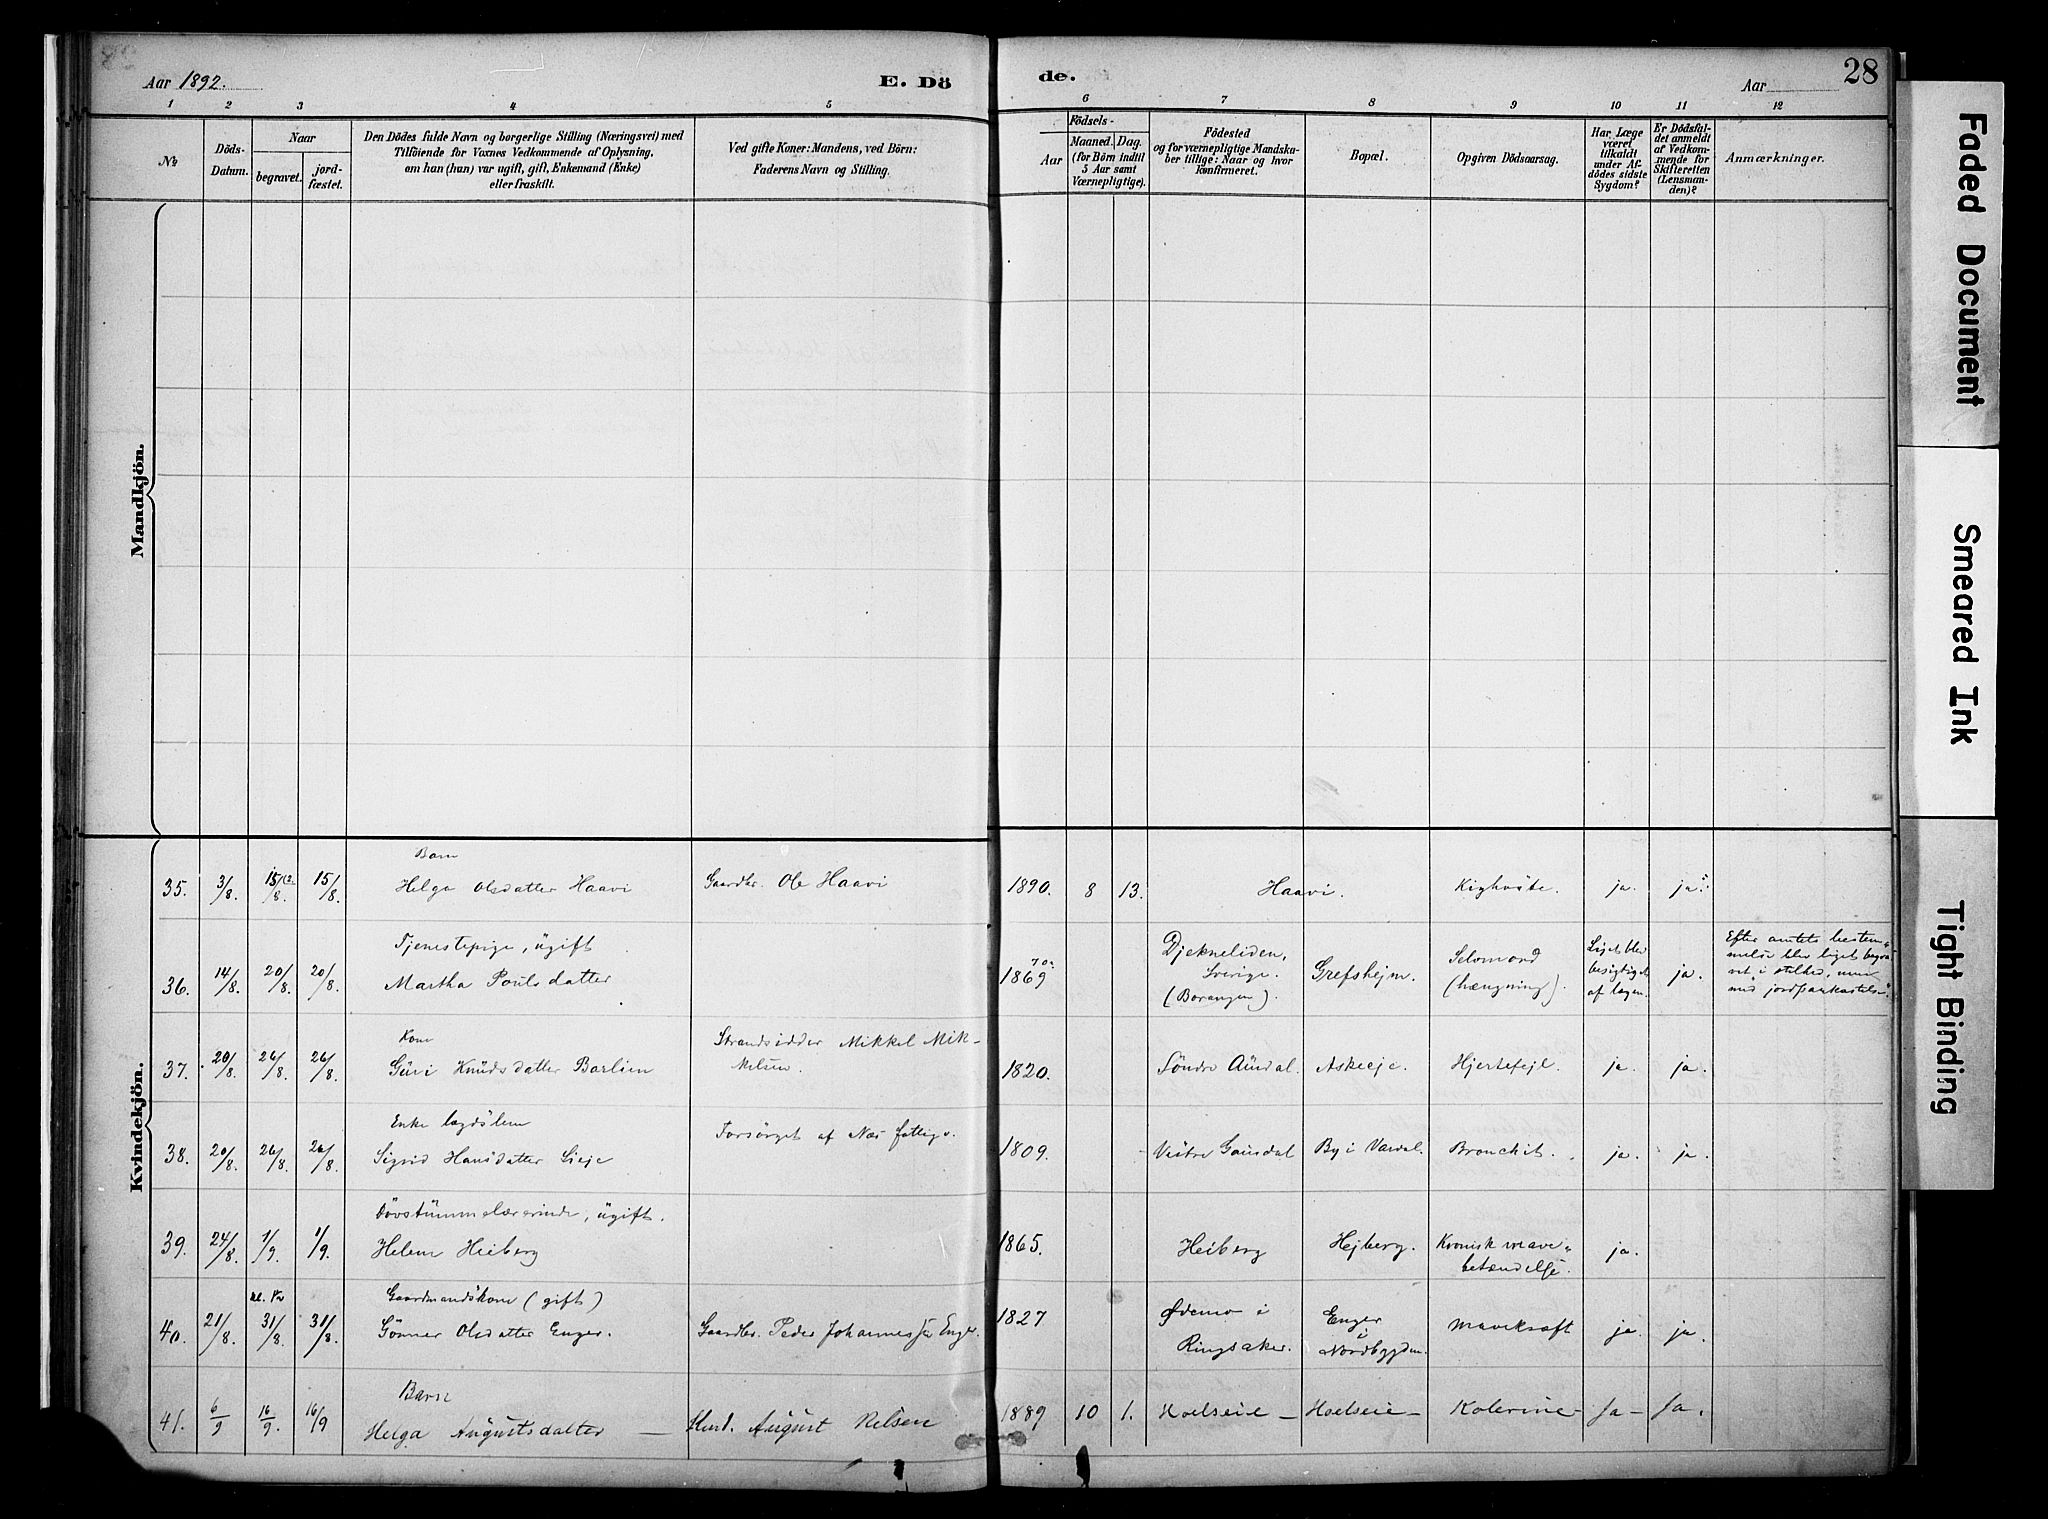 Aar 1892.
E. Dö
de.
Aar
28
1 2 3 4 5 6 7 8 9 10 11 12
No
Döds-
Datum.
Naar
begravet.
jord-
fæstet.
Den Dödes fulde Navn og borgerlige Stilling (Næringsvei) med
Tilföiende for Voxnes Vedkommende af Oplysning,
om han (hun) var ugift, gift, Enkemand (Enke)
eller fraskilt.
Ved gifte Koner: Mandens, ved Börn:
Faderens Navn og Stilling.
Aar
Födsels-
Maaned. Dag.
(for Börn indtil
5 Aar samt
Værnepligtige).
Födested
og for værnepligtige Mandska-
ber tillige: Naar og hvor
konfirmeret.
Bopæl.
Opgiven Dödsaarsag.
Har Læge
været
tilkaldt
under Af-
dödes sidste
Sygdom?
Er Dödsfal-
det anmeldt
af Vedkom-
mende for
Skifteretten
(Lensman-
den)?
Anmærkninger.
Mandkjön.
Kvindekjön.
Barn
35. 3/8. 15/8. 15/8. Helga Olsdatter Haavi Gaardbr. Ole Haavi 1890. 8 13. Haavi. Kighoste. ja. ja.
Tjenestepige, ugift
36. 14/8. 20/8. 20/8. Martha Poulsdatter 1869
Djekneliden,
Sverige.
(Borangen).
Grefshejm.
Selvmord
(hængning).
Liget blev
besigtiget
af lægen.
ja.
Efter amtets bestem-
melse blev liget begra-
vet i stilhed, men
med jordpaakastelse.
Kone
37. 20/8. 26/8. 26/8. Guri Knudsdatter Barlien
Strandsidder Mikkel Mik-
kelsen.
1820. Söndre Aurdal. Askeeje. Hjertefejl. ja. ja.
Enke lægdslem
38. 20/8. 26/8. 26/8. Sigrid Hansdatter Lieje Forsörget af Næs fattigv. 1809. Vestre Gausdal By i Vardal. Bronchit. ja. ja.
Dövstummelærerinde, ugift.
39. 24/8. 1/9. 1/9. Helene Heiberg 1865. Heiberg Hejberg.
Kronisk mave-
betændelse.
ja.
Gaardmandskone (gift)
40. 21/8. 31/8. 31/8. Gunner Olsdatter Enger. Gaardbr. Peder Johannessen Enger. 1827
Ødemo i
Ringsaker.
Enger
i
Nordbygden.
Mavekræft ja. ja.
Barn
41. 6/9 16/9. 16/9 Helga Augustsdatter — Husm. August Nelsen 1889 10 1. Hoelseie — Hoelseie — Kolerine Ja — Ja.
Faded Document
Smeared Ink
Tight Binding